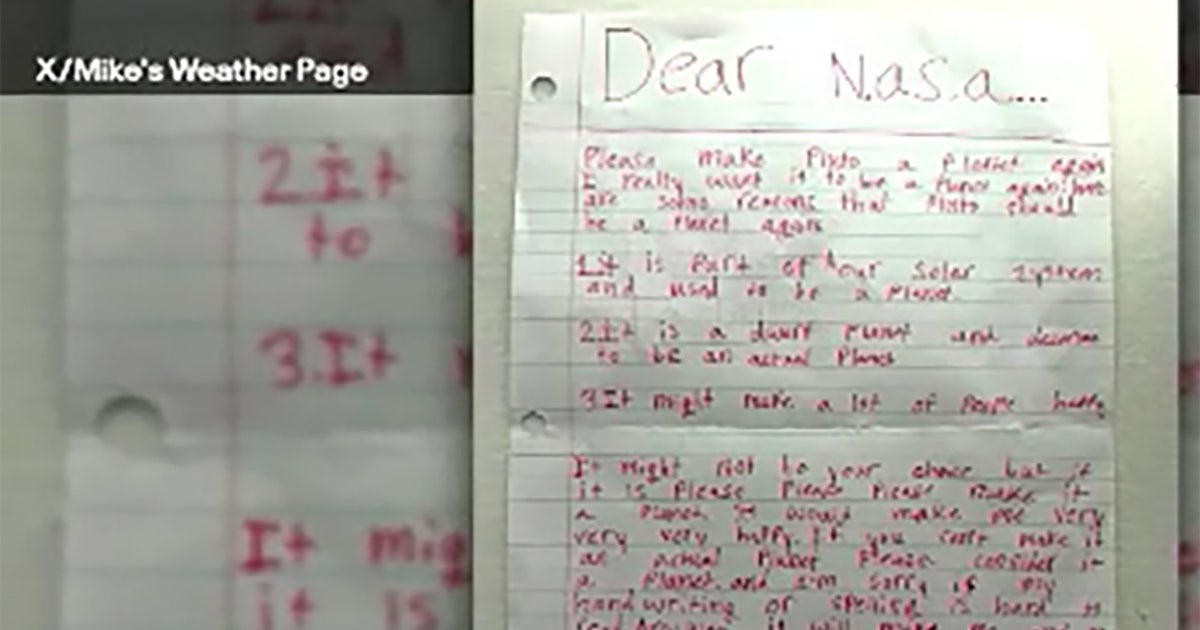 X/Mike's Weather Page
Dear N.a.s.a...
Please make Pluto a Planet again
I really want it to be a Planet again. here
are some reasons that Pluto should
be a Planet again
1 it is Part of our Solar system
and used to be a Planet
2 It is a dwarf Planet and
to be an actual Planet
3 It might make a lot of People happy
It might not be your choice but if
it is Please Please Please make it
a Planet. It would make me very
very very happy. If you can't make it
an actual Planet Please consider it
a Planet. and I'm Sorry if my
handwriting or spelling is hard to
read it will make
2 It
to
3. It
It mig
it is